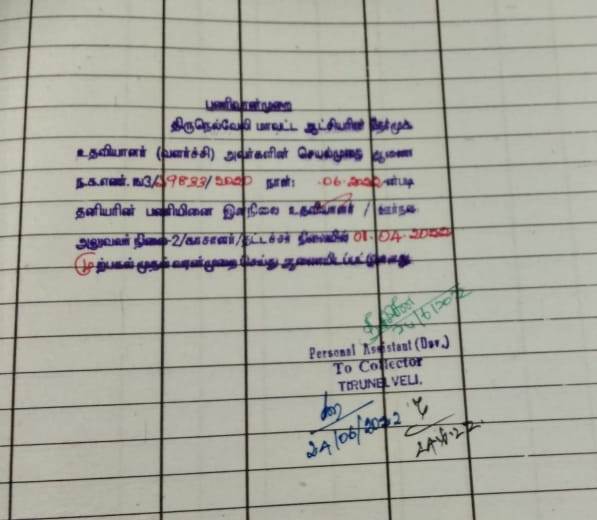 பணிவரன்முறை
திருநெல்வேலி மாவட்ட ஆட்சியரின் நேர்முக
உதவியாளர் (வளர்ச்சி) அவர்களின் செயல்முறை ஆணை
ந.க.எண். /2020 நாள்: .06.2022-ன்படி
தனியரின் பணியினை இளநிலை உதவியாளர் / ஊர்நல
அலுவலர் நிலை-2/காசாளர்/தட்டச்சர் நிலையில் 01.04.2022
முற்பகல் முதல் வரன்முறை செய்து ஆணையிடப்பட்டுள்ளது
24/6/2022
Personal Assistant (Dev.)
To Collector
TIRUNELVELI.
24/06/2022